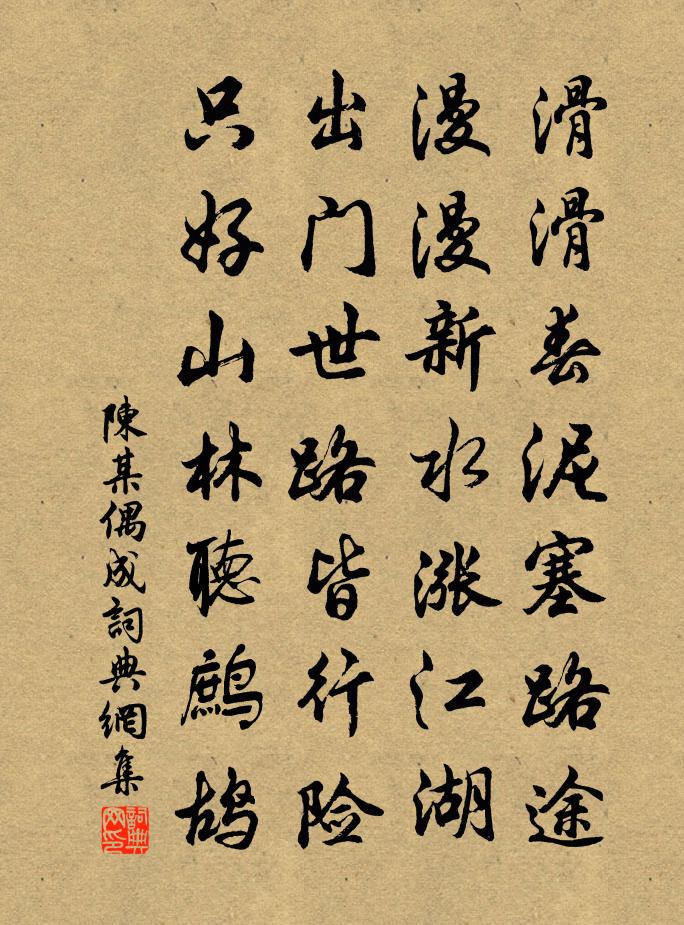 滑滑春泥塞路途
漫漫新水涨江湖
出门世路皆行险
只好山林聴鹧鸪
陳某偶成詞典網集
詞典
网印